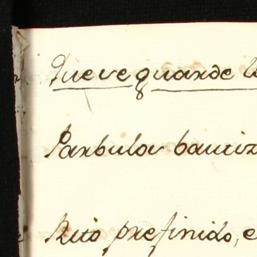 Queve guarde
Parbulos bautiz
Rito prefinido, e